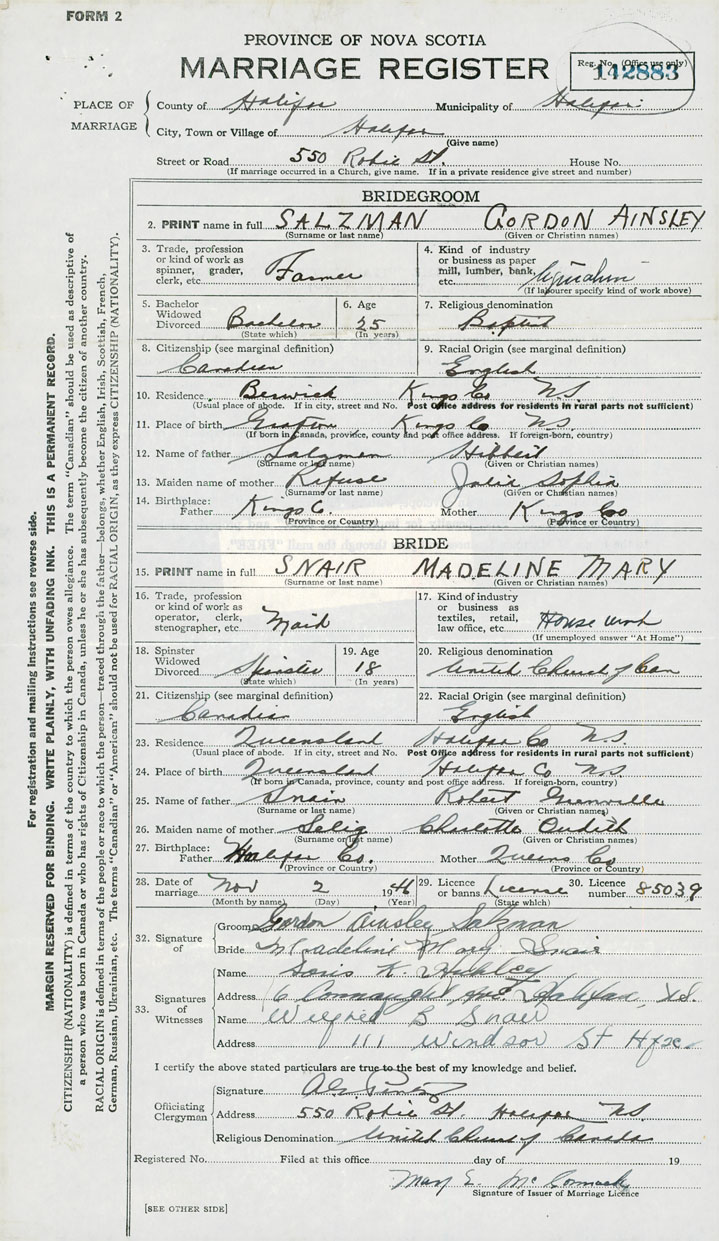 FORM 2
PROVINCE OF NOVA SCOTIA
MARRIAGE REGISTER
Reg. No. (Office use only)
142883
PLACE OF MARRIAGE
County of Halifax Municipality of Halifax
City, Town or Village of Halifax
(Give name)
Street or Road 550 Robie St. House No.
(If marriage occurred in a Church, give name. If in a private residence give street and number)
BRIDEGROOM
2. PRINT name in full SALZMAN GORDON AINSLEY
(Surname or last name) (Given or Christian names)
3. Trade, profession or kind of work as spinner, grader, clerk, etc. Farmer
4. Kind of industry or business as paper mill, lumber, bank, etc.
(If labourer specify kind of work above)
5. Bachelor Widowed Divorced Bachelor
(State which)
6. Age 25
(In years)
7. Religious denomination
Baptist
8. Citizenship (see marginal definition)
Canadian
9. Racial Origin (see marginal definition)
English
10. Residence Berwick Kings Co N.S.
(Usual place of abode. If in city, street and No. Post Office address for residents in rural parts not sufficient)
11. Place of birth Grafton Kings Co N.S.
(If born in Canada, province, county and post office address. If foreign-born, country)
12. Name of father Salzman Hibbert
(Surname or last name) (Given or Christian names)
13. Maiden name of mother Refuse Julia Sophia
(Surname or last name) (Given or Christian names)
14. Birthplace: Father Kings C. Mother Kings Co
(Province or Country) (Province or Country)
BRIDE
15. PRINT name in full SNAIR MADELINE MARY
(Surname or last name) (Given or Christian names)
16. Trade, profession or kind of work as operator, clerk, stenographer, etc Maid
17. Kind of industry or business as textiles, retail, law office, etc. House work
(If unemployed answer "At Home")
18. Spinster Widowed Divorced Spinster
(State which)
19. Age 18
(In years)
20. Religious denomination
United Church of Can
21. Citizenship (see marginal definition)
Canadian
22. Racial Origin (see marginal definition)
English
23. Residence Queensland Halifax Co N.S.
(Usual place of abode. If in city, street and No. Post Office address for residents in rural parts not sufficient)
24. Place of birth Queensland Halifax Co N.S.
(If born in Canada, province, county and post office address. If foreign-born, country)
25. Name of father Snair Robert Grenville
(Surname or last name) (Given or Christian names)
26. Maiden name of mother Selig Charlotte
(Surname or last name) (Given or Christian names)
27. Birthplace: Father Halifax Co. Mother Queens Co
(Province or Country) (Province or Country)
28. Date of marriage Nov 2 1946
(Month by name) (Day) (Year)
29. Licence or banns License
(State which)
30. Licence number 85039
32. Signature of
Groom Gordon Ainsley Salzman
Bride Madeline Mary Snair
33. Signatures of Witnesses
Name Doris K.
Address 6 Connaught Ave. Halifax, N.S.
Name Wilfred B Snair
Address 111 Windsor St Hfx.
I certify the above stated particulars are true to the best of my knowledge and belief.
Officiating Clergyman
Signature
Address 550 Robie St. Halifax N.S.
Religious Denomination United Church of Canada
Registered No. Filed at this office day of 19
Mary E. McCormack
Signature of Issuer of Marriage Licence
[SEE OTHER SIDE]
For registration and mailing instructions see reverse side.
MARGIN RESERVED FOR BINDING. WRITE PLAINLY, WITH UNFADING INK. THIS IS A PERMANENT RECORD.
CITIZENSHIP (NATIONALITY) is defined in terms of the country to which the person owes allegiance. The term "Canadian" should be used as descriptive of
a person who was born in Canada or who has rights of Citizenship in Canada, unless he or she has subsequently become the citizen of another country.
RACIAL ORIGIN is defined in terms of the people or race to which the person—traced through the father—belongs, whether English, Irish, Scottish, French,
German, Russian, Ukrainian, etc. The terms "Canadian" or "American" should not be used for RACIAL ORIGIN, as they express CITIZENSHIP (NATIONALITY).